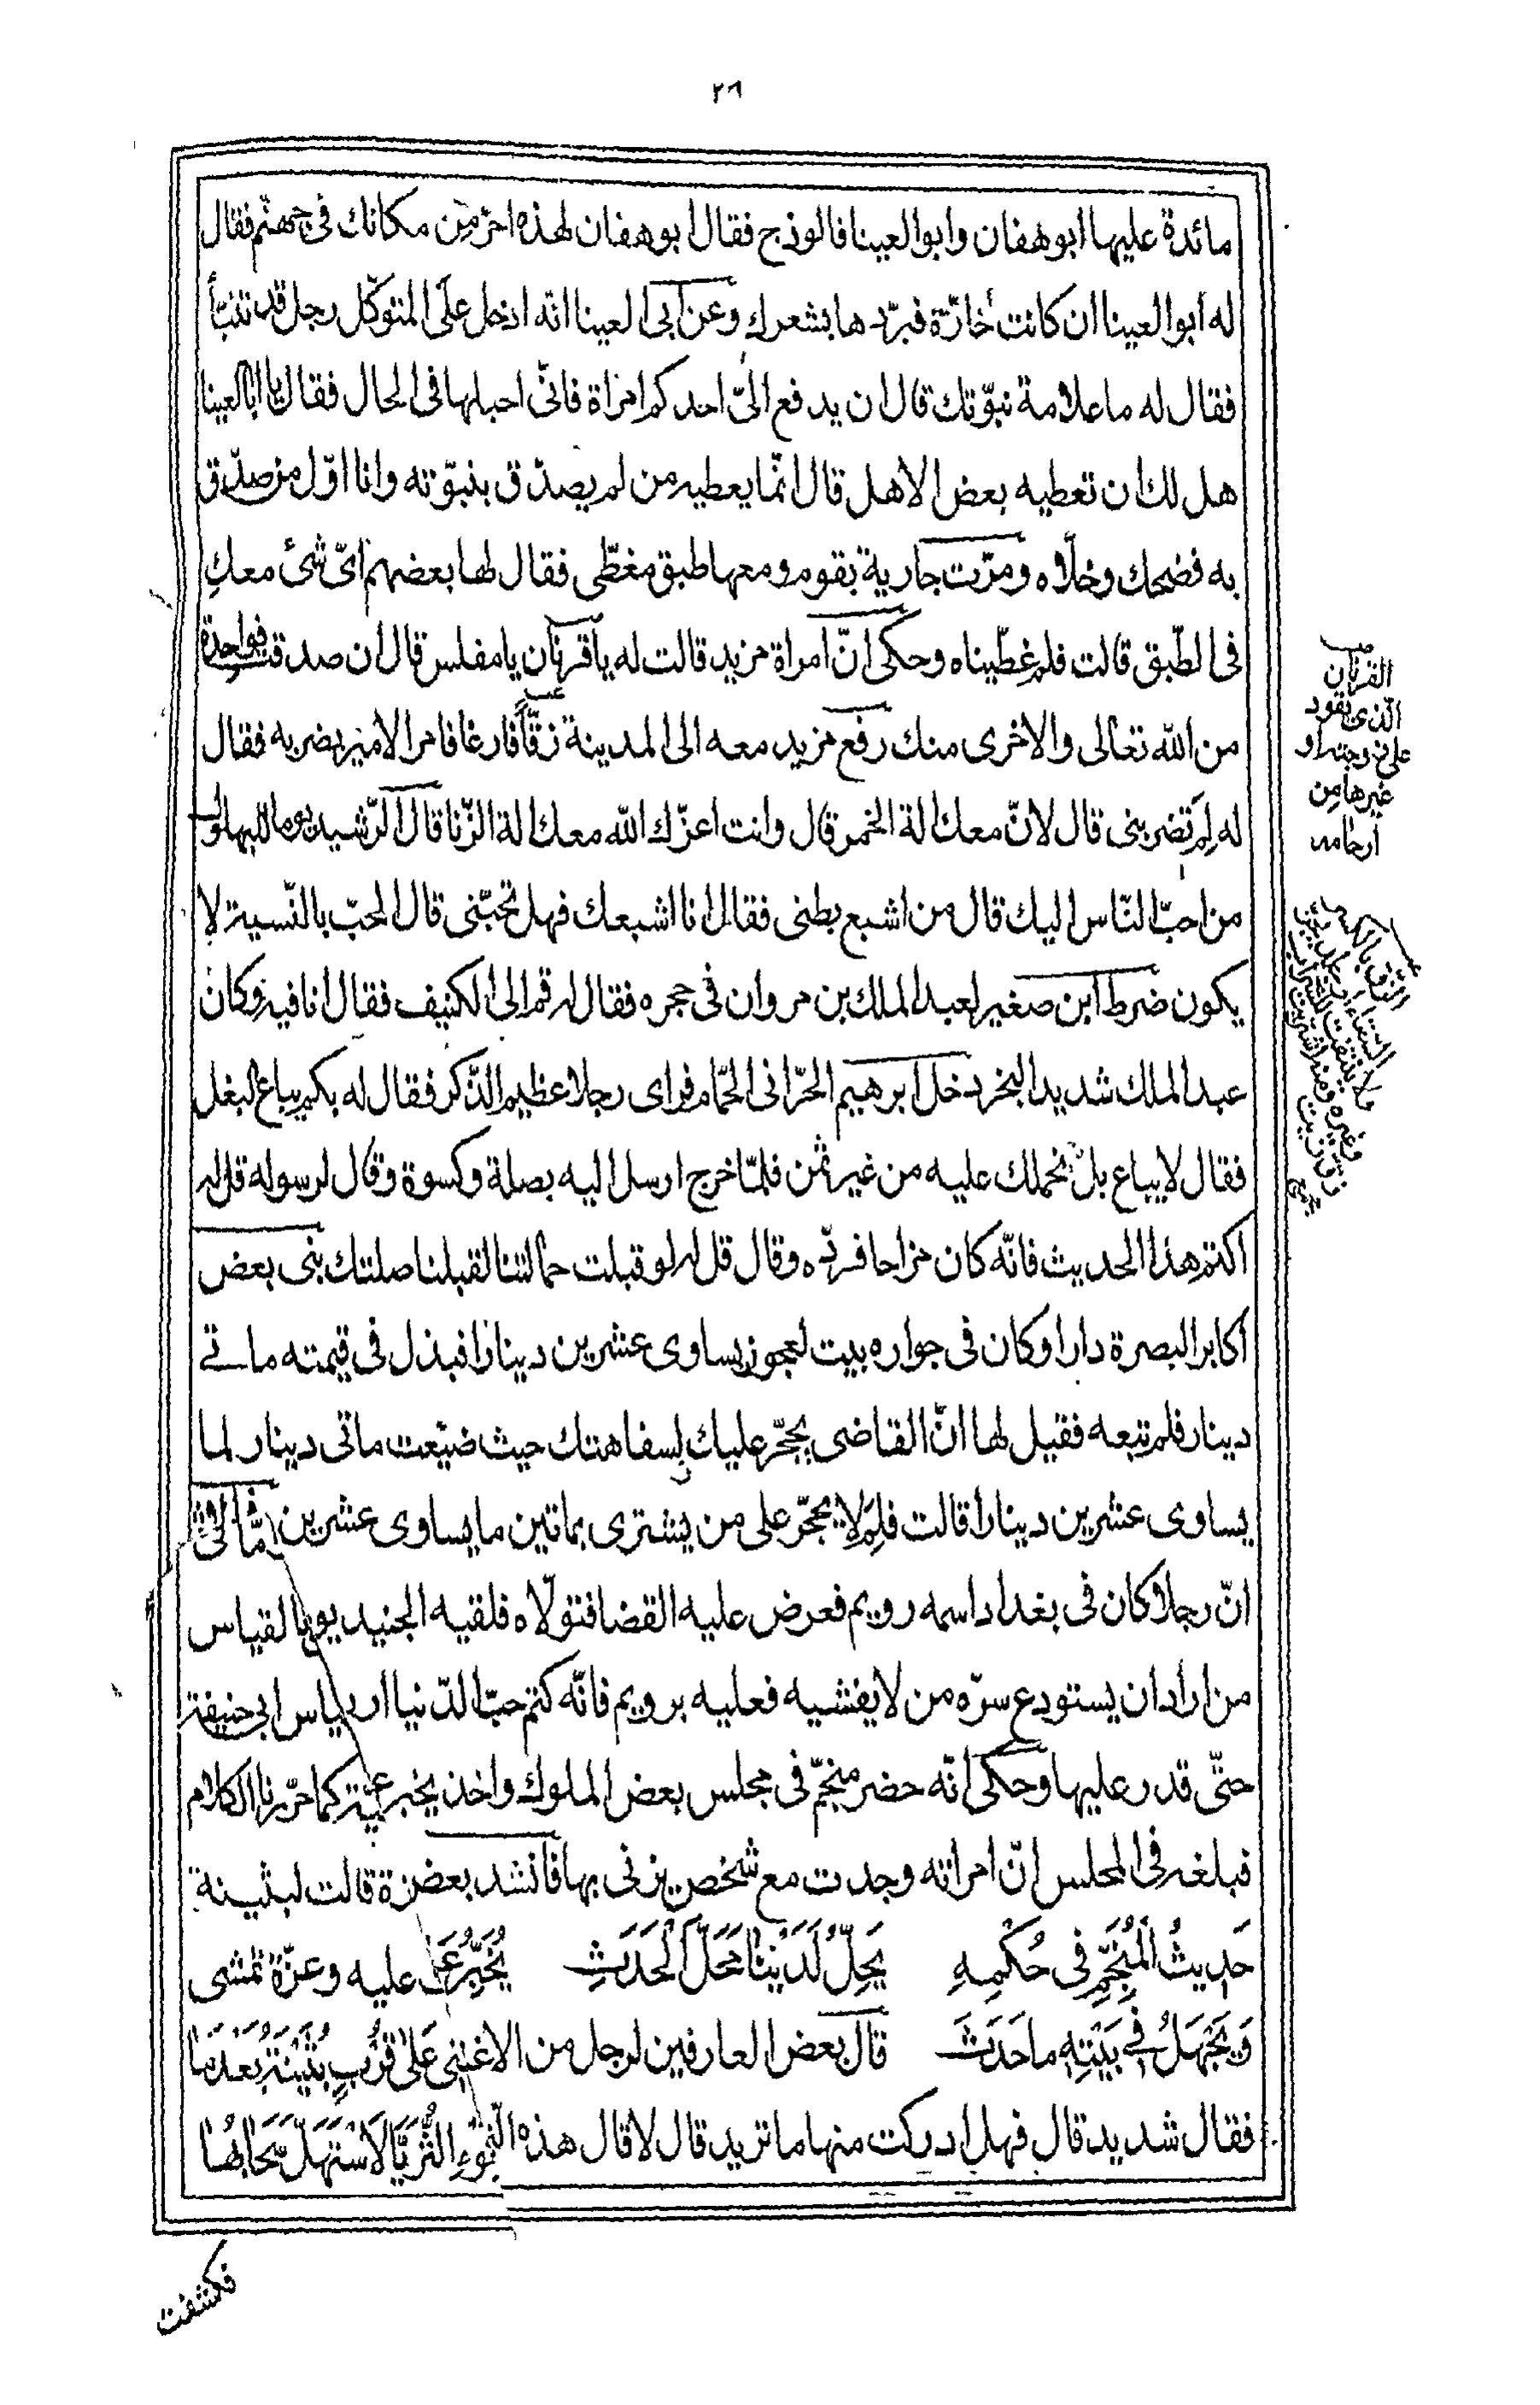 ٢٦
مائدة عليها ابو هفان وابو العينا فالوذج فقال ابو هفان لهذه احرّ من مكانك فى جهنّم فقال
له ابو العينا ان كانت حٰارّة فبرّدها بشعرك وعن ابى العينا انّه ادخل على المتوكّل رجل قد تنبّأ
فقال له ما علامة نبوّتك قال ان يدفع الىّ احدكم امراة فانّى احبلها فى الحال فقال يا ابا العينا
هل لك ان تعطيه بعض الاهل قال انّما يعطيه من لم يصدّق بنبوّته وانا اوّل من صدّق
به فضحك وخلّاه ومرّت جارية بقوم ومعها طبق مغطّى فقال لها بعضهم اىّ شئ معكِ
فى الطّبق قالت فلم غطّيناه وحكى انّ امراة مزيد قالت له يا قرنان يا مفلس قال ان صدقت فواحدة
من اللّه تعالى والاخرى منك رفع مزيد معه الى المدينة زقّاً فارغا فامر الامير بضربه فقال
له لِمَ تضربنى قال لانّ معك الة الخمر قال وانت اعزّك اللّه معك الة الزّنا قال الرّشيد يوما للبهلول
من احبّ النّاس اليك قال من اشبع بطنى فقال انا اشبعك فهل تحبّنى قال الحبّ بالنّسية لا
يكون ضرط ابن صغير لعبد الملك بن مروان فى حجره فقال له قم الى الكنيف فقال انا فيه وكان
عبد الملك شديد البخر دخل ابرهيم الحرّانى الحمّام فراى رجلا عظيم الذّكر فقال له بكم يباع البغل
فقال لا يباع بل نحملك عليه من غير ثمن فلمّا خرج ارسل اليه بصلة وكسوة وقال لرسوله قل له
اكتم هذا الحديث فانّه كان مزاحا فردّه وقال قل له لو قبلت حمالتنا لقبلنا صلتك بنى بعض
اكابر البصرة دارا وكان فى جواره بيت لعجوز يساوى عشرين دينارا فبذل فى قيمته ماتى
دينار فلم تبعه فقيل لها انّ القاضى يحجّر عليك لسفاهتك حيث ضيّعت ماتى دينار لما
يساوى عشرين ديناراً قالت فلِمَ لا يحجّر على من يشترى بماتين ما يساوى عشرين
انّ رجلا كان فى بغداد اسمه رويم فعرض عليه القضا فتولّاه فلقيه الجنيد يوما القياس
من اراد ان يستودع سرّه من لا يفشيه فعليه برويم فانّه كتم حبّ الدّنيا ابى حنيفة
حتّى قدر عليها وحكى انّه حضر منجّم فى مجلس بعض الملوك واخذ يخبر كما حرّرنا الكلام
فبلغه فى المجلس انّ امراته وجدت مع شخص يزنى بها فانشد بعض عزة قالت لبثينة
حَدِيثُ الْمُنَجِّمِ فى حُكْمِهِ يَحِلّ لَدَيْنا مَحَلَّ الْحَدَثِ يُخَبِّرُ عليه وعزّة تمشى
وَيَجْهَلُ فِى بَيْتِهِ ما حَدَثَ قال بعض العارفين لرجل من الاغنى عَلىٰ قُرْبٍ بُثَيْنَةُ بعدما
فقال شديد قال فهل ادركت منها ما تريد قال لا قال هذه الّتى الثُّرَيّا لَاسْتَهَلَّ سَحَابُها
فكشفت
القرنان
الّذى يقود
على زوجته او
غيرها من
ارحامه
الزّق بالكسر
السقاء